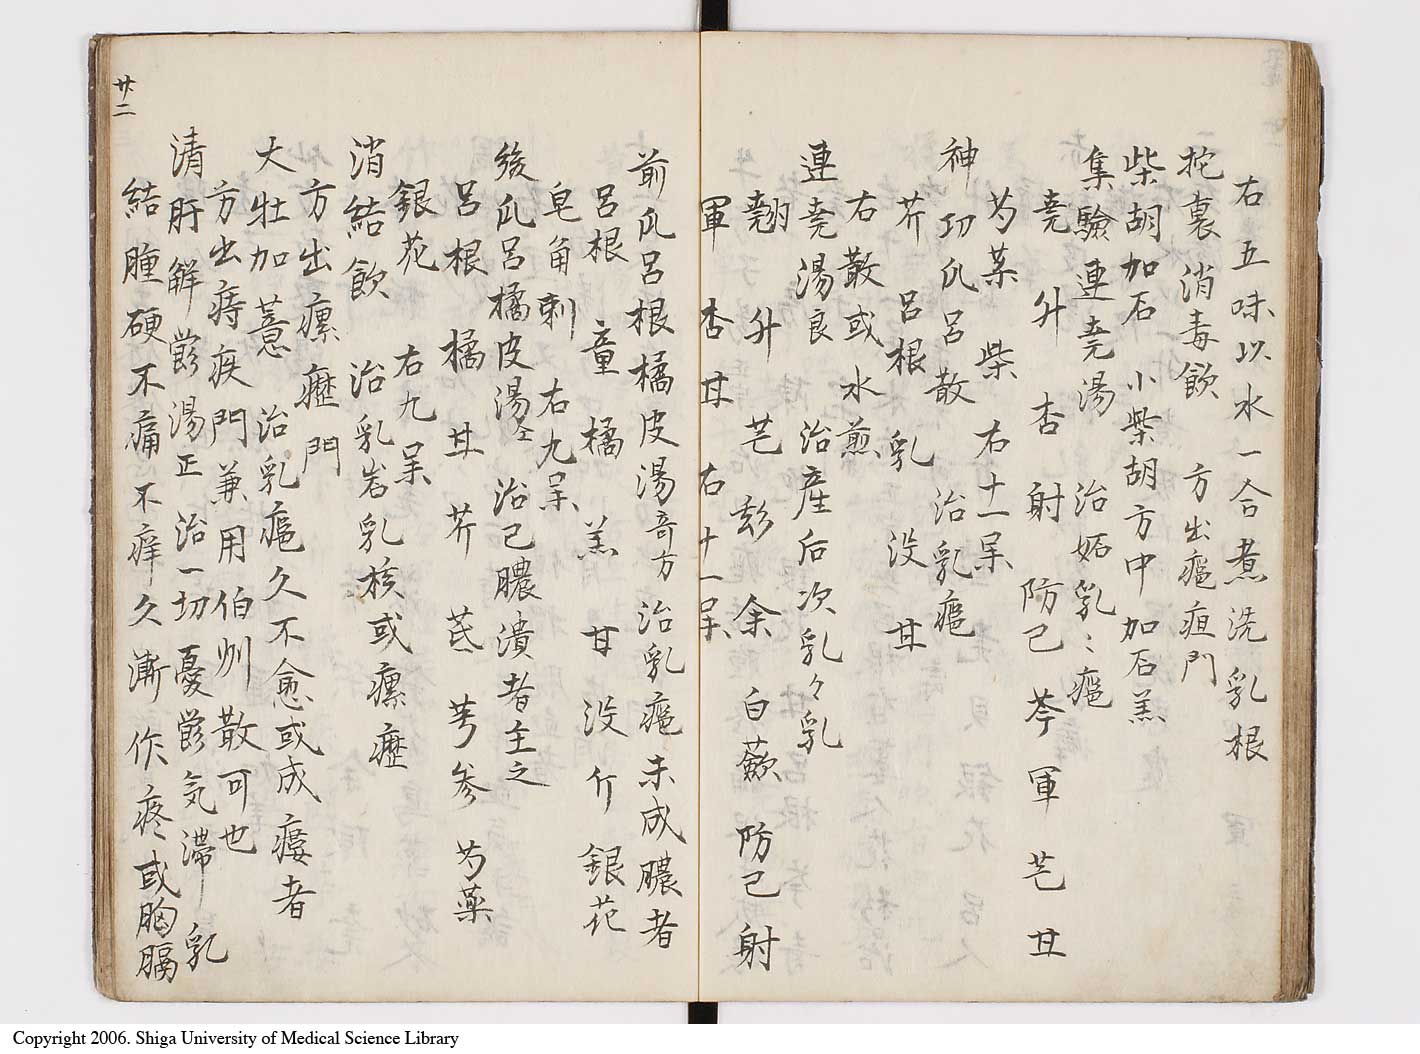 右五味以水一合煮洗乳根
托裏消毒飲 方出癰疽門
柴胡加石 小柴胡方中加石羔
集験連尭湯 治妬乳〻癰
尭 升 杏 射 防己 芩 軍 芒 甘
芍薬 柴 右十一味
神功瓜呂散 治乳癰
芥 呂根 乳 没 甘
右散或水煎
連尭湯良 治産后次乳々乳
尭 升 芒 彭 余 白蘞 防己 射
軍 杏 甘 右十一味
前瓜呂根橘皮湯奇方 治乳癰未成膿者
呂根 童 橘 羔 甘 没 个 銀花
皂角刺 右九味
後瓜呂橘皮湯仝 治已膿潰者主之
呂根 橘 甘 芥 芪 芎 参 芍薬
銀花 右九味
消結飲 治乳岩乳核或瘰癧
方出瘰癧門
大牡加薏 治乳癰久不愈或成瘻者
方出痔疾門兼用伯州散可也
清肝解鬱湯正 治一切憂鬱気滞乳
結腫硬不痛不痒久漸作疼或胸膈
廿二
Copyright 2006. Shiga University of Medical Science Library